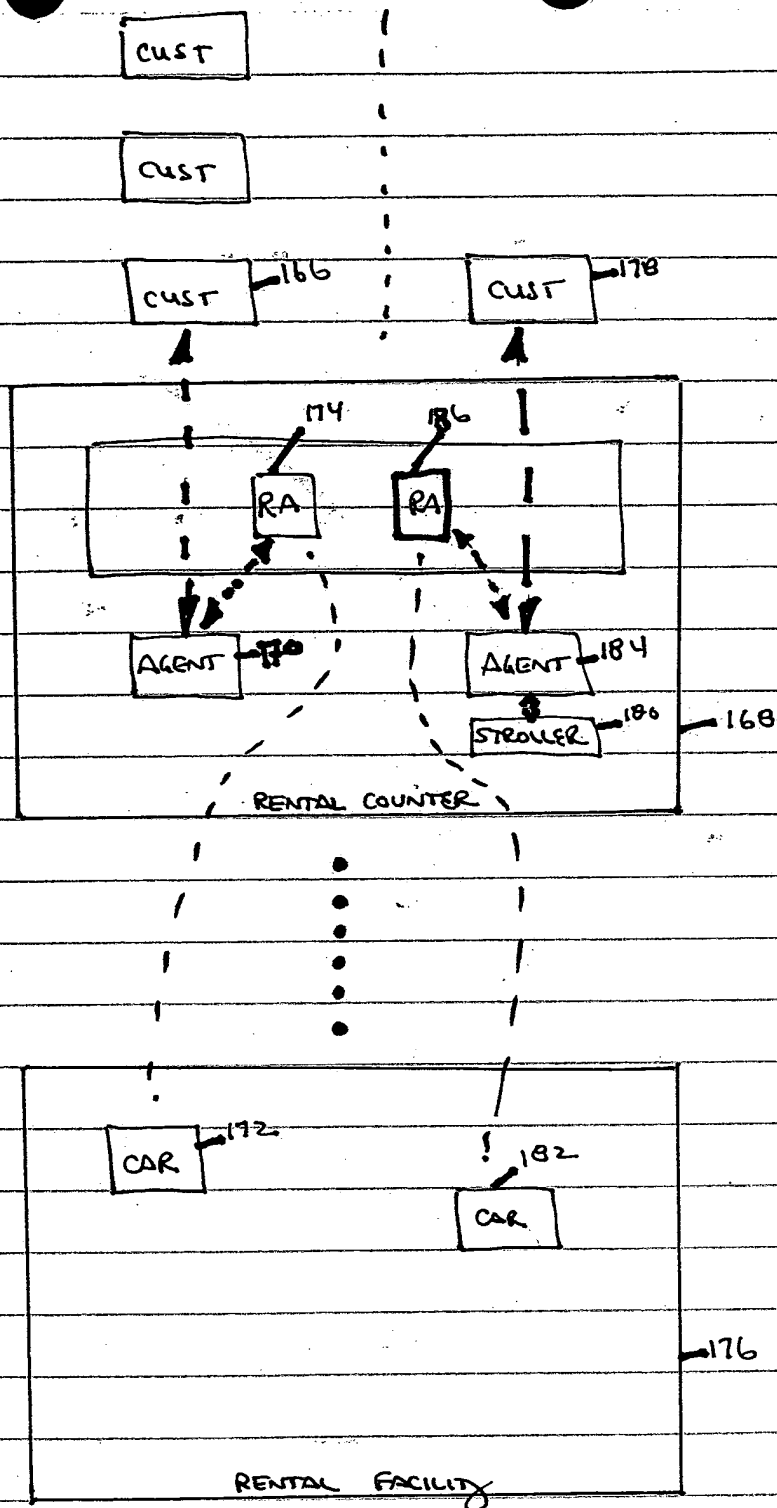 CUST
CUST
CUST 166
CUST 178
174 186
RA RA
AGENT 170
AGENT 184
STROLLER 180
168
RENTAL COUNTER
CAR 172
182
CAR
176
RENTAL FACILITY